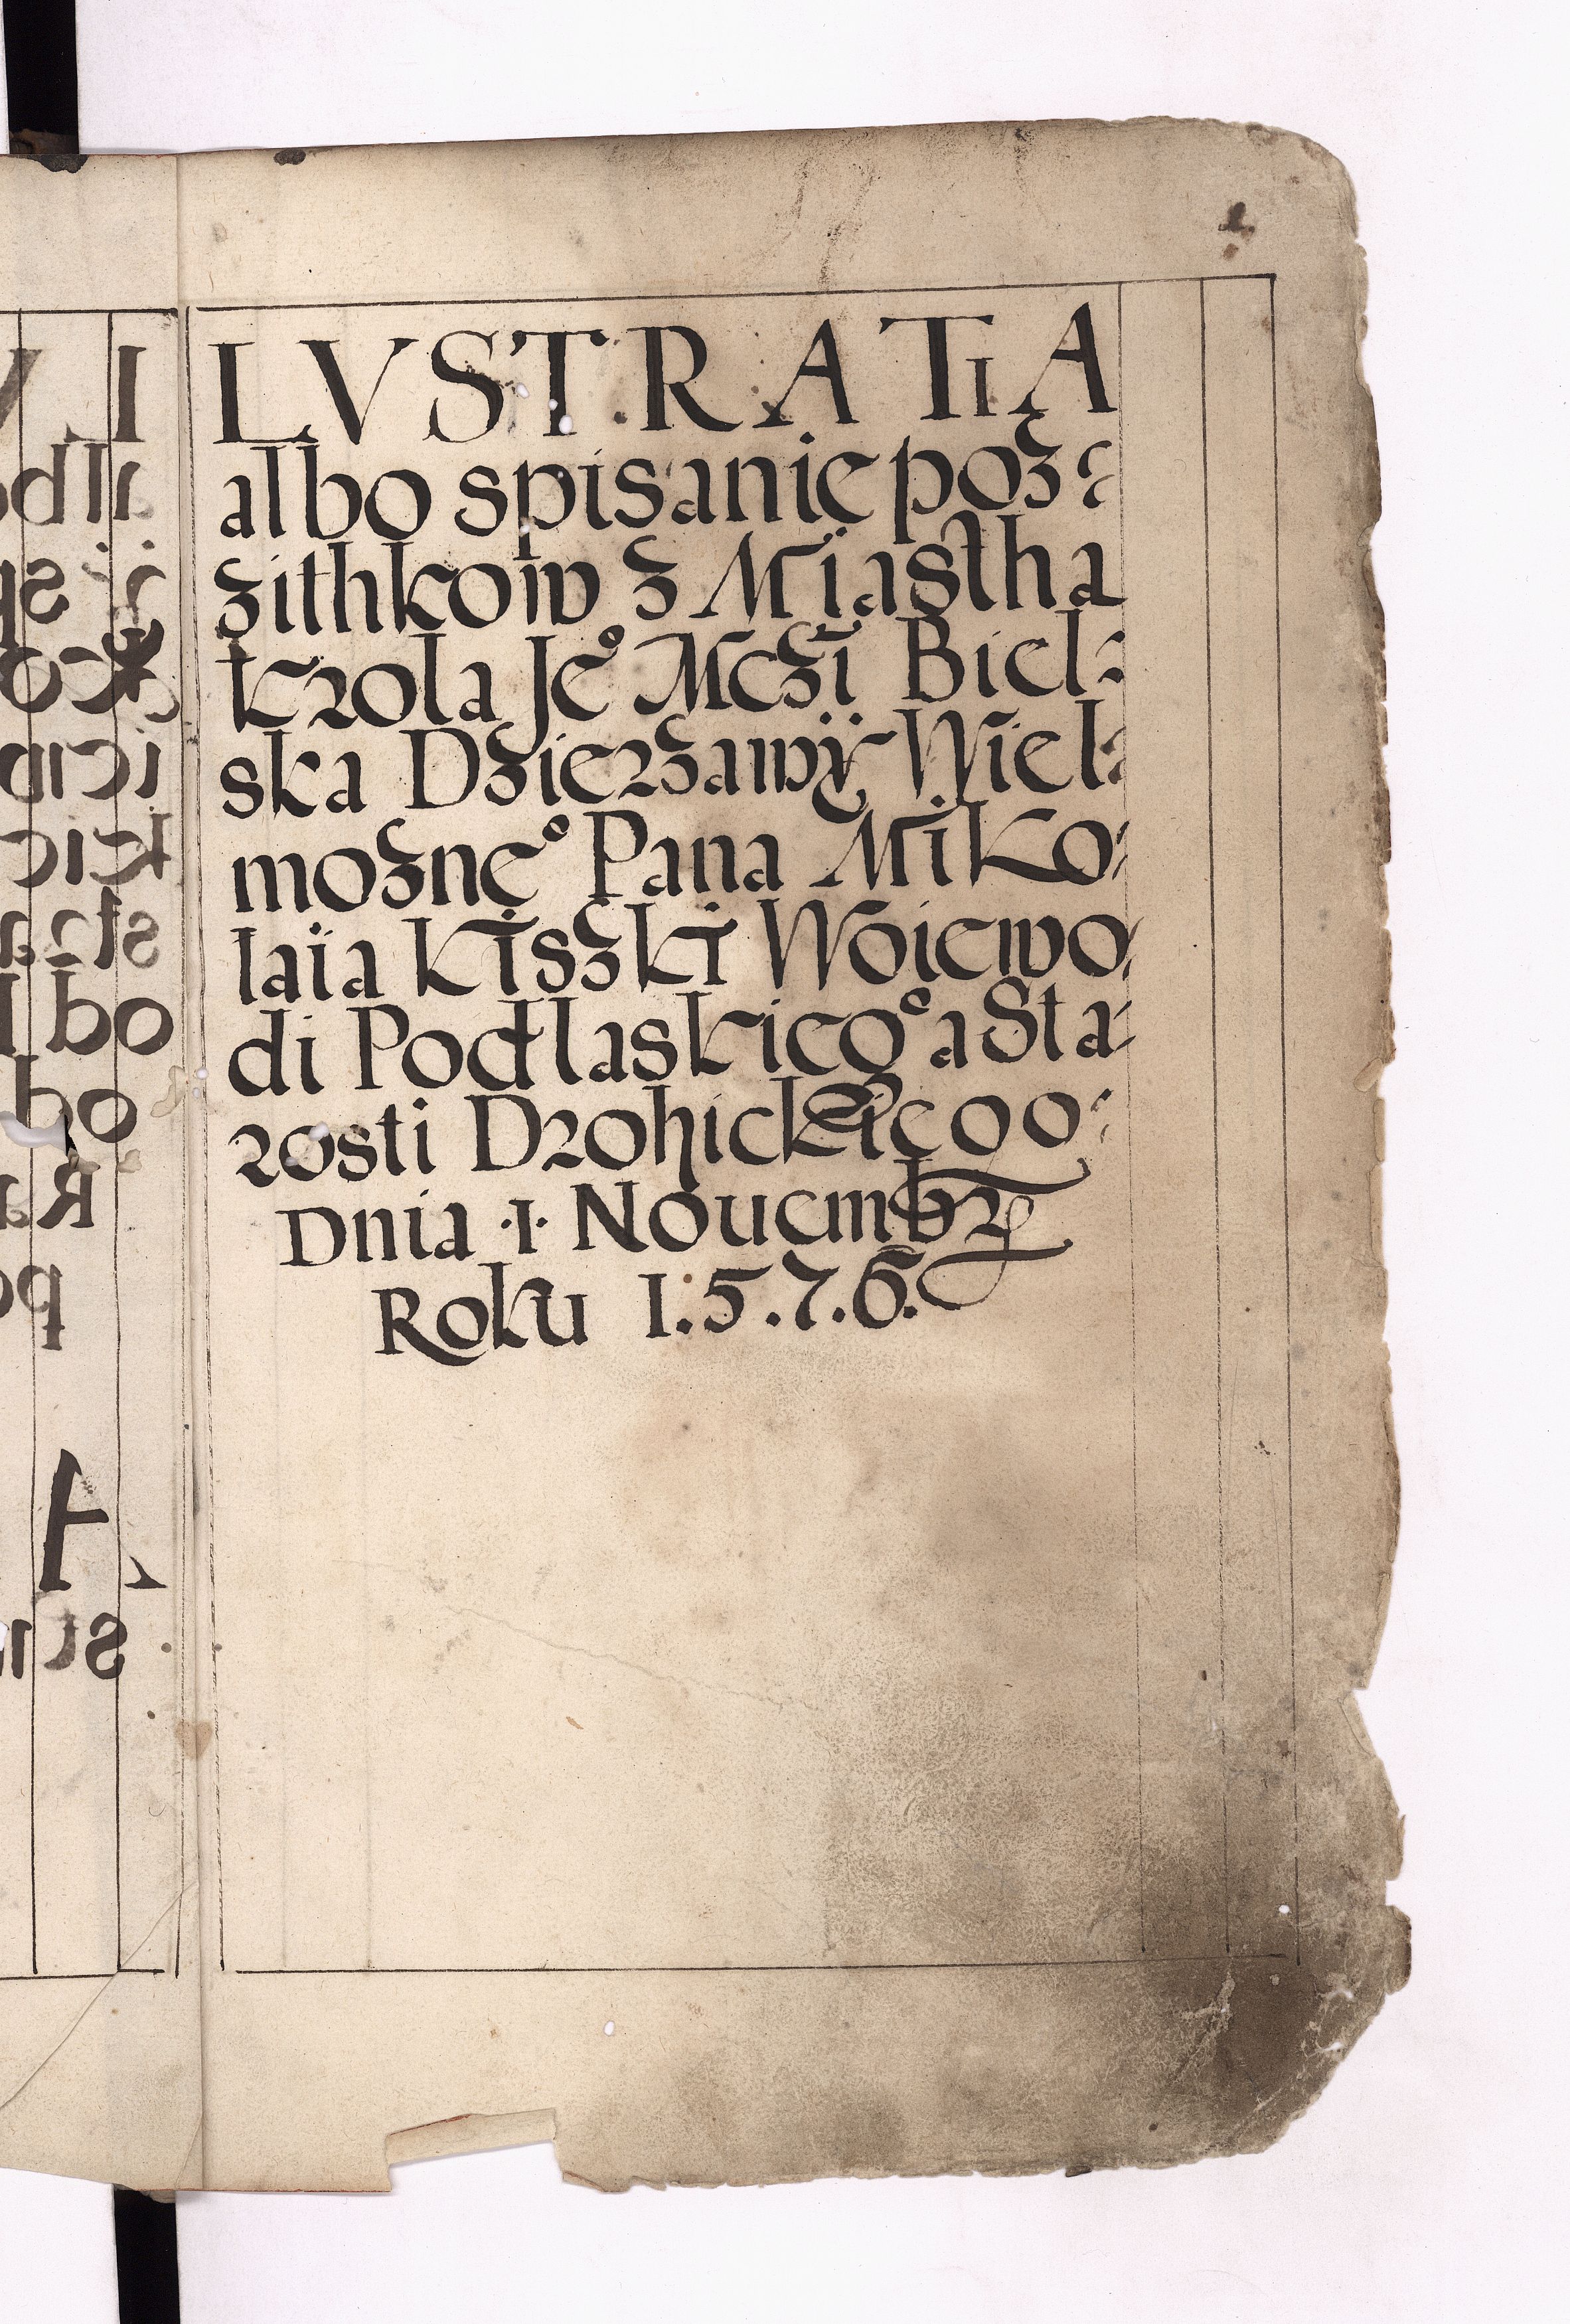 LVSTRATIA
albo spisanie poz-
zithkow z Miastha
Krola Je° Mczi Biel-
ska Dzierzawÿ Wiel-
mozne° Pana Miko-
laïa Kiszki Woiewo-
di Podlaskieg° a Sta-
rosti Drohickieoo-
Dnia ·I· Nouembr
Roku 1.5.7.6.